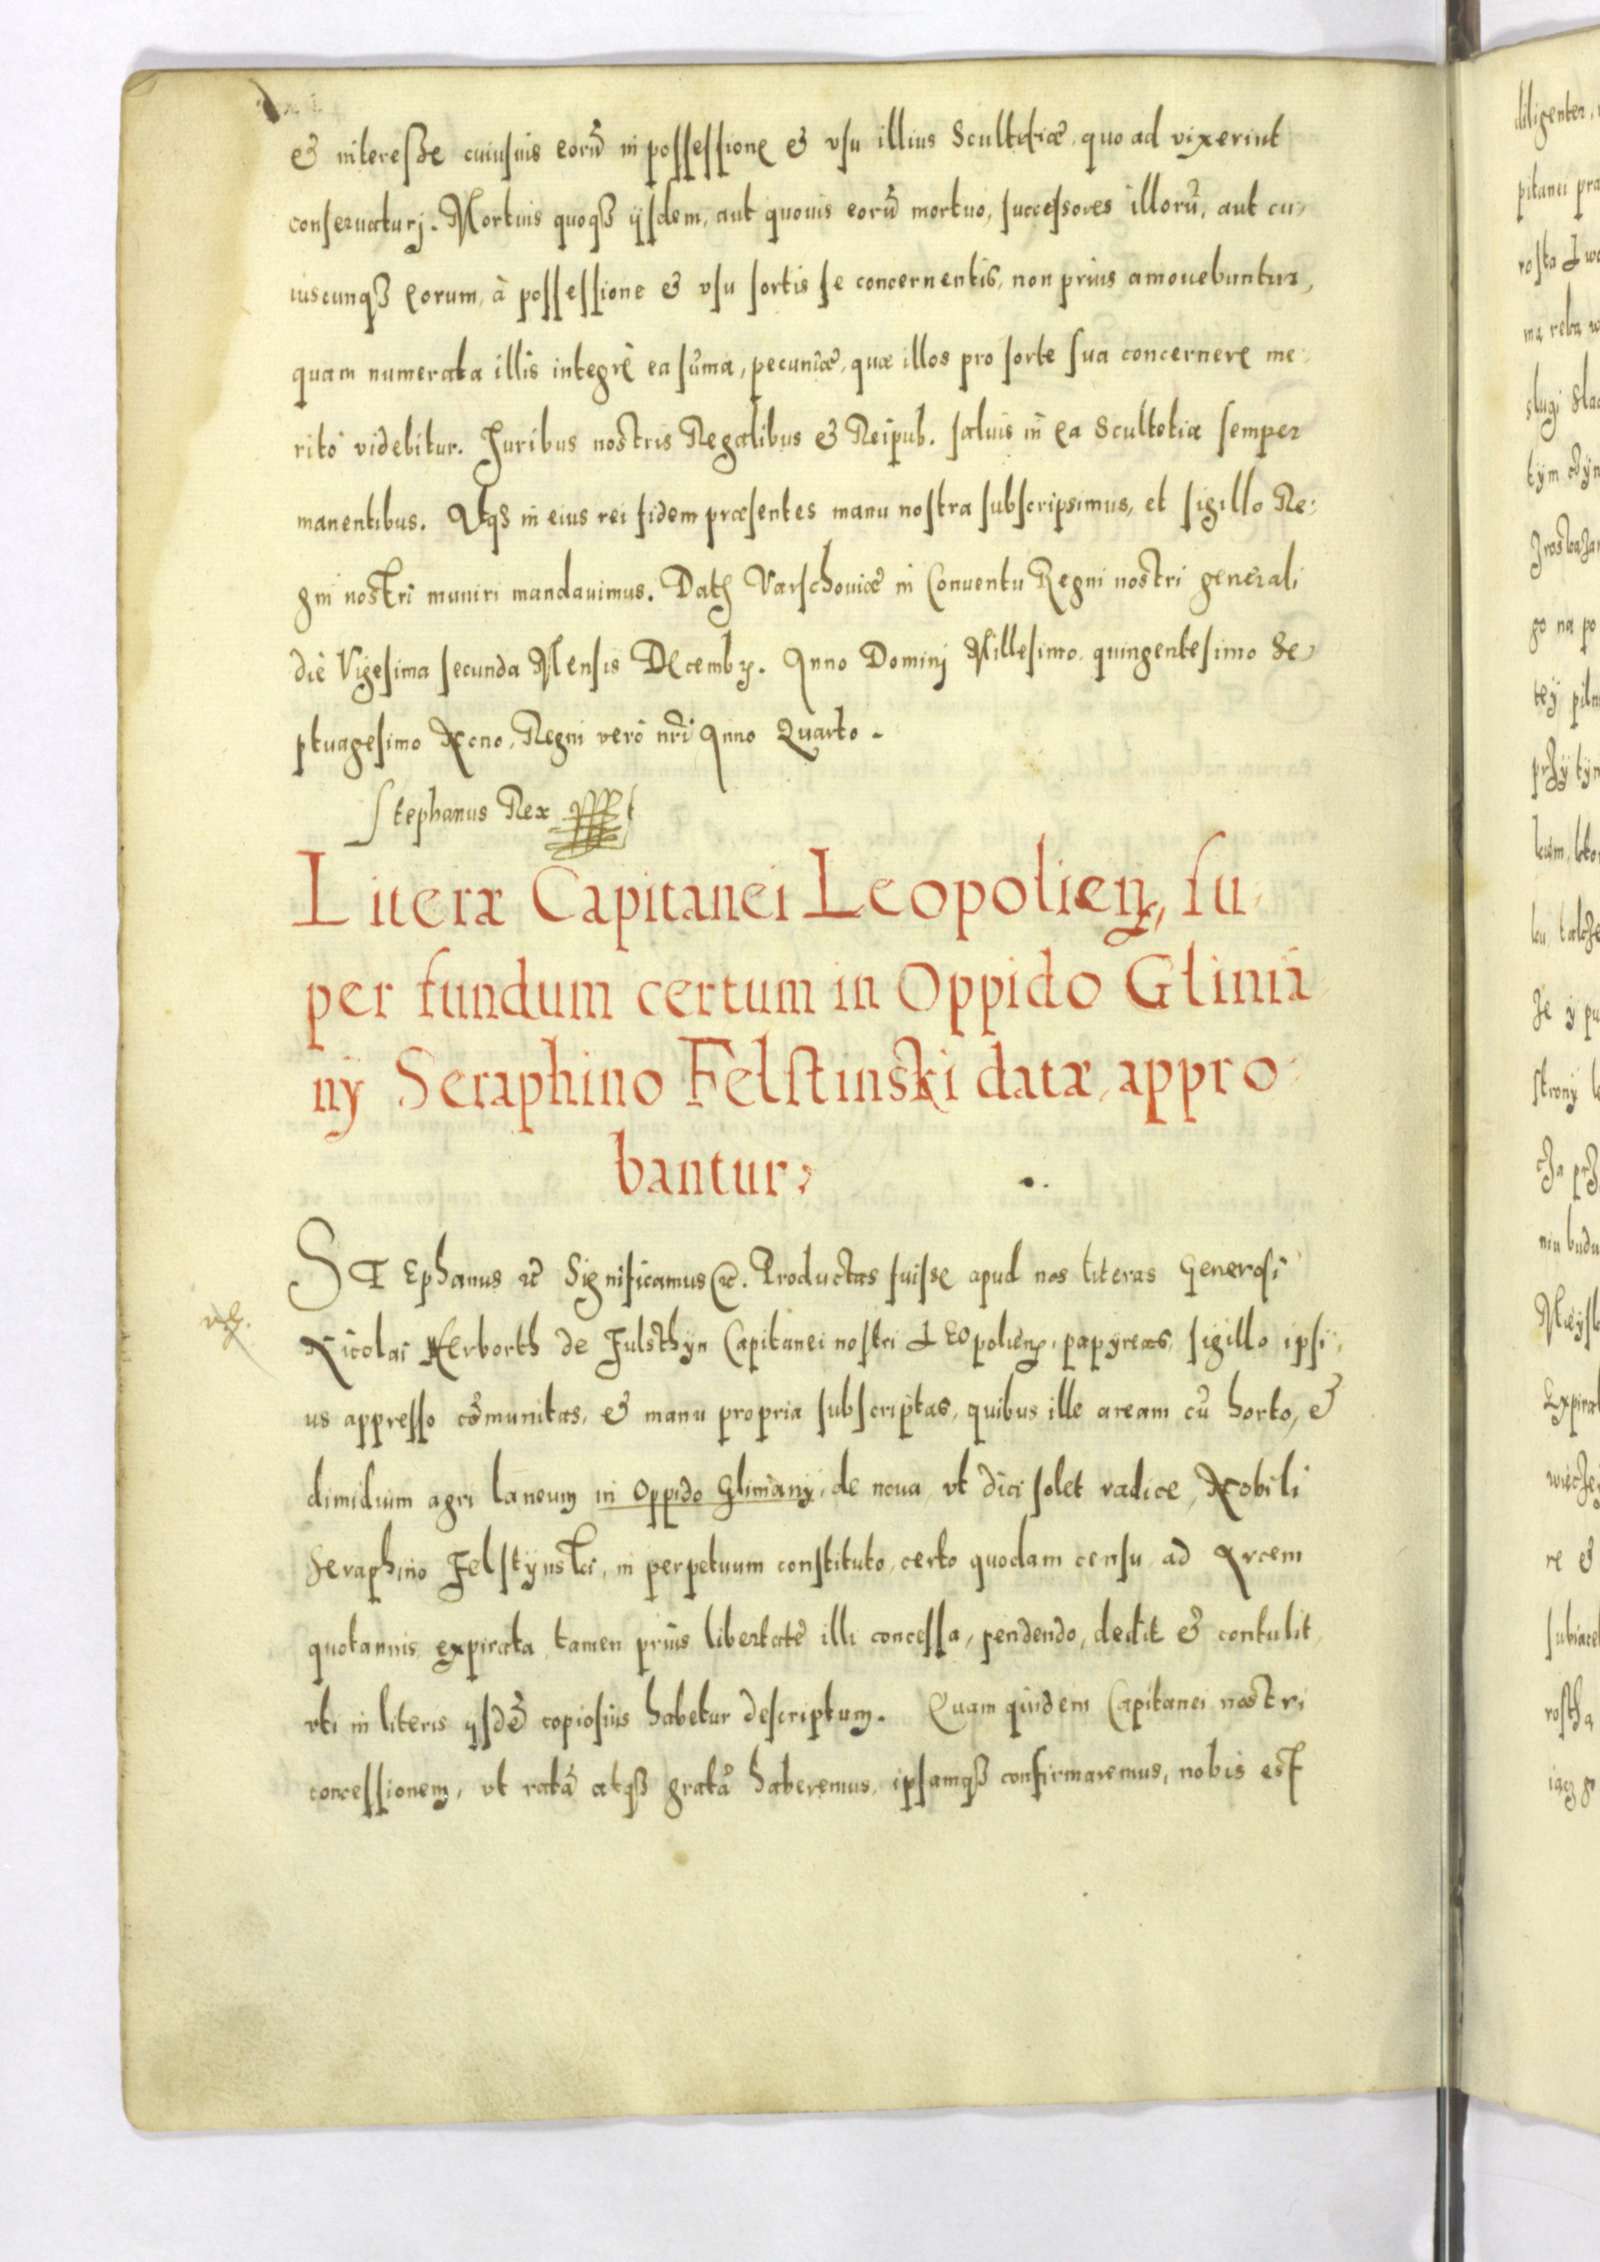 & interesse cuiusuis eorũ in possessione & vsu illius Scultetiæ, quo ad vixerint
conseruaturj. Mortuis quoqȝ ijsdem, aut quouis eorũ mortuo, successores illorũ, aut cu-
iuscunqȝ eorum, à possessione & vsu sortis se concernentis, non prius amouebuntur,
quam numerata illis integrè ea sũma, pecuniæ, quæ illos pro sorte sua concernere me-
rito videbitur. Juribus nostris Regalibus & Reipub. saluis in ea Scultetia semper
manentibus. Jnqȝ in eius rei fidem præsentes manu nostra subscripsimus, et sigillo Re-
gni nostri muniri mandauimus. Datȝ Varschouiæ in Conuentu Regni nostri generali
die Vigesima secunda Mensis Decembȝ. Anno Dominj Millesimo quingentesimo Se-
ptuagesimo Nono, Regni verò nr̃i Anno Quarto.
Stephanus Rex
Literæ Capitanei Leopolienȝ, su-
per fundum certum in Oppido Glinia-
ny Seraphino Felstinski datæ, appro-
bantur.
STEphanus etc Significamus etc. Productas fuisse apud nos literas Generosi
Nicolai Herborth de Fulsthyn Capitanei nostri LEOpolienȝ, papyreas, sigillo ipsi-
us appresso cõmunitas, & manu propria subscriptas, quibus ille aream cũ horto, &
dimidium agri laneum in Oppido Gliniany, de noua, vt dici solet radice, Nobili
Seraphino Felstÿnski, in perpetuum constituto, certo quodam censu ad Arcem
quotannis expirata tamen prius libertate illi concessa, pendendo, dedit & contulit,
vti in literis ijsdẽ copiosius habetur descriptum. Quam quidem Capitanei nostri
concessionem, vt ratã atqȝ gratã haberemus, ipsamqȝ confirmaremus, nobis est